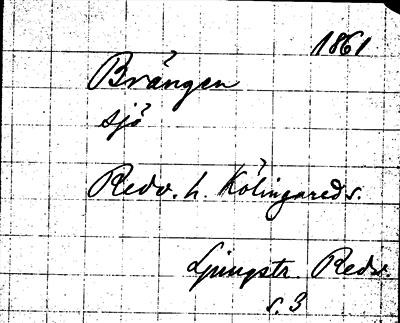 1861
Brängen
sjö
Redv. h. Kölingareds.
Ljungstr. Redv.
s. 3